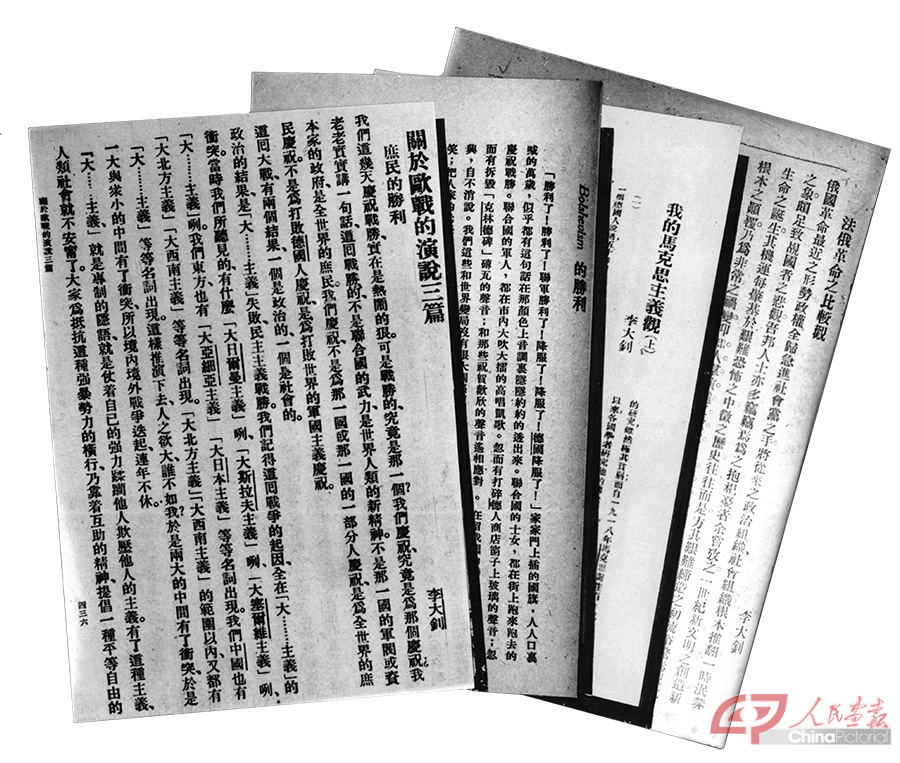 關於歐戰的演說三篇
庶民的勝利
李大釗
我們這幾天慶祝戰勝、實在是熱鬧的狠。可是戰勝的、究竟是那一個？我們慶祝、究竟是爲那個慶祝？我
老老實實講一句話、這回戰勝的、不是聯合國的武力、是世界人類的新精神。不是那一國的軍閥或資
本家的政府、是全世界的庶民。我們慶祝、不是爲那一國或那一國的一部分人慶祝、是爲全世界的庶
民慶祝。不是爲打敗德國人慶祝、是爲打敗世界的軍國主義慶祝。
這回大戰、有兩個結果、一個是政治的、一個是社會的。
政治的結果、是「大………主義」失敗、民主主義戰勝。我們記得這回戰爭的起因、全在「大………主義」的
衝突。當時我們所聽見的、有什麼「大日爾曼主義」咧、「大斯拉夫主義」咧、「大塞爾維主義」咧、
「大………主義」咧。我們東方也有「大亞細亞主義」「大日本主義」等等名詞出現。我們中國也有
「大北方主義」「大西南主義」等等名詞出現。「大北方主義」「大西南主義」的範圍以內、又都有
「大………主義」等等名詞出現。這樣推演下去、人之欲大、誰不如我、於是兩大的中間有了衝突、於是
一大與衆小的中間有了衝突、所以境內境外戰爭迭起、連年不休。
「大………主義」、就是專制的隱語、就是仗着自己的強力蹂躪他人欺壓他人的主義。有了這種主義、
人類社會就不安寧了。大家爲抵抗這種強暴勢力的橫行、乃靠着互助的精神、提倡一種平等自由的
關於歐戰的演說三篇
四三六
Bolshevism 的勝利
「勝利了！勝利了！聯軍勝利了！降服了！降服了！德國降服了！」家家門上插的國旗，人人口裏
喊的萬歲，似乎都有這句話在那顏色上音調裏隱隱約約的透出來。聯合國的士女，都在街上跑來跑去的
慶祝戰勝，聯合國的軍人，都在市內大吹大擂的高唱凱歌。忽而有打碎德人商店窗子上玻璃的聲音；忽
而有拆毀「克林德碑」磚瓦的聲音；和那些祝賀歡欣的聲音遙相應對。在留我國的
興，自不消說。我們這些和世界變局沒有很大關係
笑；把人家的
我的馬克思主義觀（上）
李大釗
（一）
一個德國人說過
的研究
以來，各國學者研究他的
法俄革命之比較觀
李大釗
俄國革命最近之形勢，政權全歸急進社會黨之手，將從來之政治組織、社會組織根本推翻。一時泯棼
之象，頗足致覘國者之悲觀。吾邦人士，亦多竊竊焉爲之抱杞憂者。余嘗攷之，一世紀新文明之創造，新
生命之誕生，其機運每肇基於艱難恐怖之中，徵之歷史，往往而是。方其艱難締造之初，
根本之顚覆，乃爲非常之
人民画报
ChinaPictorial